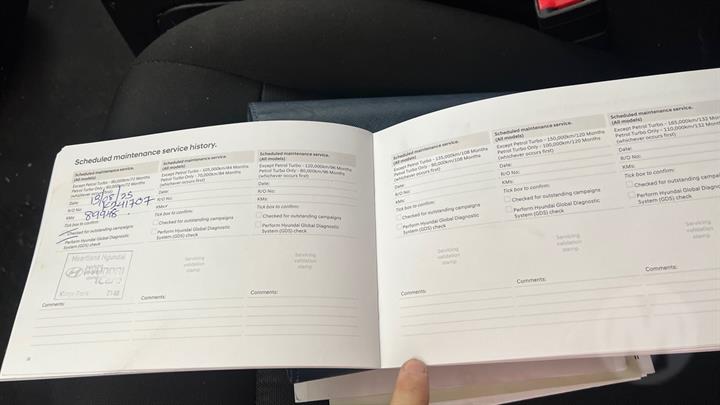 Scheduled maintenance service history.
Scheduled maintenance service.
(All models)
Except Petrol Turbo - 90,000km/72 Months
Petrol Turbo Only - 60,000km/72 Months
(whichever occurs first)
Date:
R/O No:
KMs:
Tick box to confirm:
Checked for outstanding campaigns
Perform Hyundai Global Diagnostic
System (GDS) check
Heartland Hyundai
HYUNDAI
Comments:
Scheduled maintenance service.
(All models)
Except Petrol Turbo - 105,000km/84 Months
Petrol Turbo Only - 70,000km/84 Months
(whichever occurs first)
Date:
R/O No:
KMs:
Tick box to confirm:
Checked for outstanding campaigns
Perform Hyundai Global Diagnostic
System (GDS) check
Servicing
validation
stamp
Comments:
Scheduled maintenance service.
(All models)
Except Petrol Turbo - 120,000km/96 Months
Petrol Turbo Only - 80,000km/96 Months
(whichever occurs first)
Date:
R/O No:
KMs:
Tick box to confirm:
Checked for outstanding campaigns
Perform Hyundai Global Diagnostic
System (GDS) check
Servicing
validation
stamp
Comments:
Scheduled maintenance service.
(All models)
Except Petrol Turbo - 135,000km/108 Months
Petrol Turbo Only - 90,000km/108 Months
(whichever occurs first)
Date:
R/O No:
KMs:
Tick box to confirm:
Checked for outstanding campaigns
Perform Hyundai Global Diagnostic
System (GDS) check
Servicing
validation
stamp
Comments:
Scheduled maintenance service.
(All models)
Except Petrol Turbo - 150,000km/120 Months
Petrol Turbo Only - 100,000km/120 Months
(whichever occurs first)
Date:
R/O No:
KMs:
Tick box to confirm:
Checked for outstanding campaigns
Perform Hyundai Global Diagnostic
System (GDS) check
Servicing
validation
stamp
Comments:
Scheduled maintenance service.
(All models)
Except Petrol Turbo - 165,000km/132 Mon
Petrol Turbo Only - 110,000km/132 Mon
(whichever occurs first)
Date:
R/O No:
KMs:
Tick box to confirm:
Checked for outstanding campa
Perform Hyundai Global Diagno
System (GDS) check
Servicing
validation
stamp
Comments: